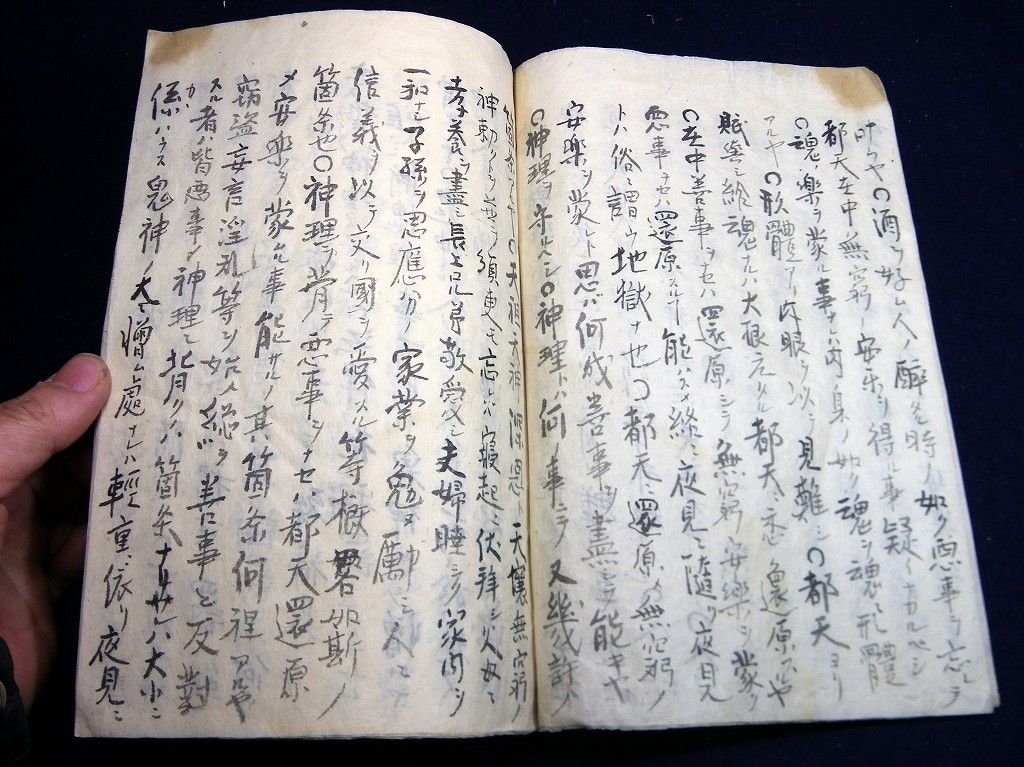 叶ハヤ〇酒ヲ好ム人ノ醉タル時ノ如ク悪事ヲ忘レテ
都天在中無窮ノ安楽ヲ得ル事疑ナカルベシ
〇魂ノ楽ヲ蒙ル事ナレハ内果ノ如ク魂ヲ魂ト形體
アルヤ〇形體アリ肉眼ヲ以テ見難シ〇都天ヨリ
賦與シ給魂ナレハ大根元タル都天ニ還原スルヤ
〇在中善事ヲセハ還原シテ無窮ノ安樂ヲ蒙リ
悪事ヲセハ還原スル能ハスメ終ニ夜見ニ墮リ夜見
トハ俗ニ謂ウ地獄ナ也〇都天ニ還原メ無窮ノ
安楽ヲ蒙レト思バ何成善事ヲ盡シテ能キヤ
〇神理ヲ守ルヘシ〇神理トハ何ノ事ニテ又幾許ノ
〇天祖大神ノ深恩ト天壌無窮ノ
神勅ヲ須更モ忘レハ寝起ニ伏拝シ父母ニ
孝養ヲ盡シ長上兄弟敬愛シ夫婦睦シク家内ヲ
一和シ子孫ヲ思應分ノ家業ヲ勉メ勵ミ人ニ
信義ヲ以テ交リ國ヲ愛スル等概畧如斯ノ
箇条也〇神理ヲ背テ悪事ヲナセハ都天還原
メ安楽ヲ蒙ル事能サルノ其箇条何程アルヤ
窃盗妄言淫乱等ヲ始メ総ヲ善事ト反對
スル者ハ皆悪事ヲ神理ニ背クハ箇条ナササレハ大小ニ
係ハラス鬼神ノ大ニ憎ム處ナレハ輕重ニ依リ夜見ニ